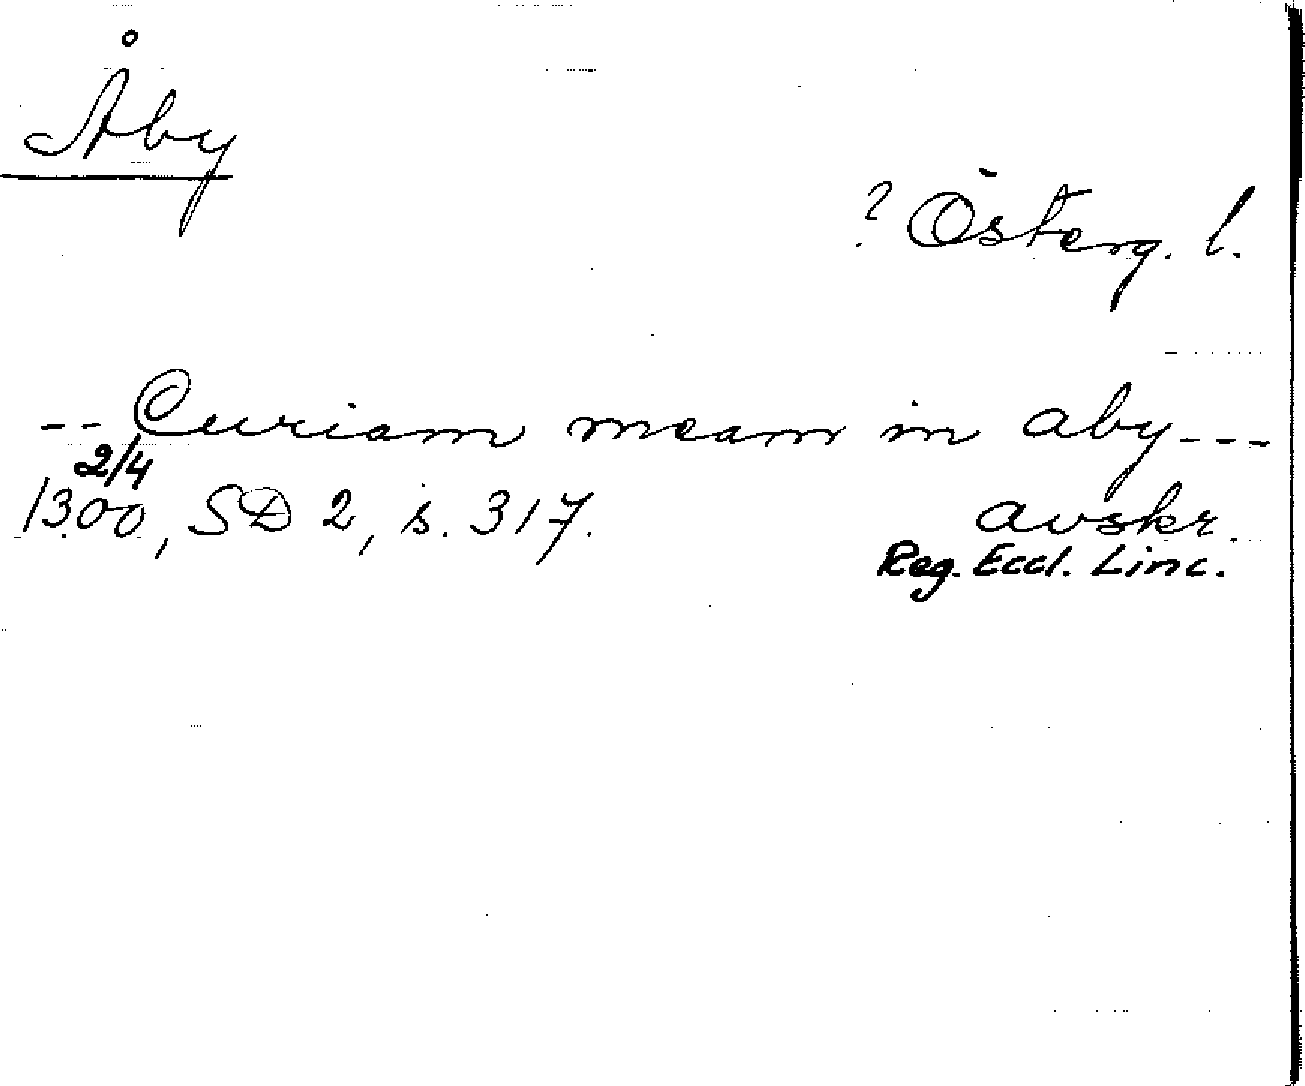 Åby
? Österg. l.
-- Curiam meam in aby ---
2/4
1300, SD 2, s. 317. avskr.
Reg. Eccl. Linc.